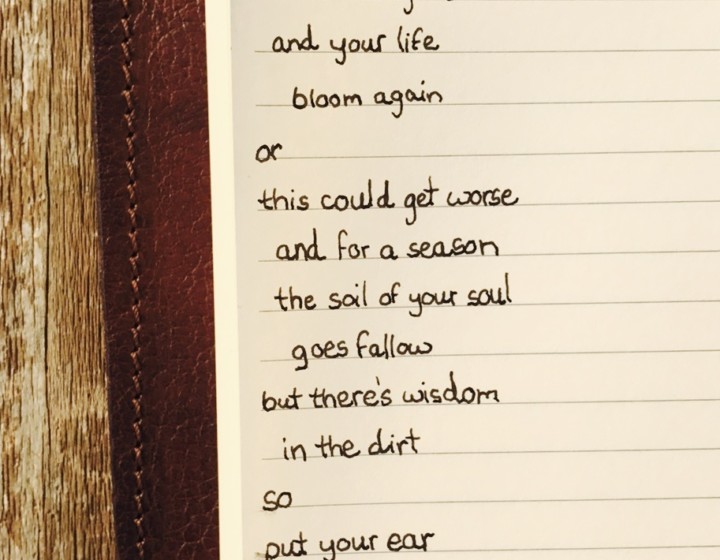 and your life
bloom again
or
this could get worse
and for a season
the soil of your soul
goes fallow
but there's wisdom
in the dirt
so
put your ear